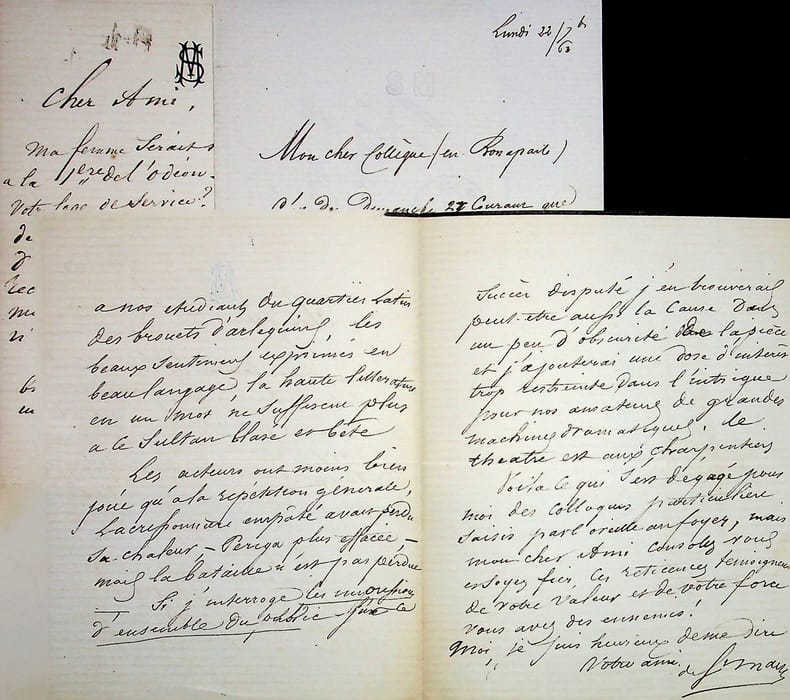 Cher Ami,
Ma femme Serait
a la 1ere de l'odéon.
Votre loge de Service?
de
rec
Lundi 22/7b
62
Mon cher Collègue (en Bonaparte)
Dimanche 27 Courant que
a nos étudiants du quartier Latin
des brouets d'arlequins, les
beaux Sentiments exprimés en
beau langage, la haute litterature
en un mot ne Suffisent plus
a ce Sultan blasé et bête
Les acteurs ont moins bien
joué qu'à la répétition générale,
Lacressonnière empâté avait perdu
Sa chaleur — Periga plus effacée —
mais la bataille n'est pas perdue
— Si j'interroge les impressions
d'ensemble du public Sur le
Succès disputé j'en trouverais
peut-etre aussi la Cause Dans
un peu d'obscurité de la pièce
et j'ajouterai une dose d'intérêt
trop restreinte Dans l'intrigue
pour nos amateurs de grandes
machines dramatiques. le
théatre est aux charpentiers
Voila ce qui S'est dégagé pour
moi des Colloques particuliers
Saisis par l'oreille au foyer, mais
mon cher Ami consolez vous
et Soyez fier, Ces réticences témoignent
de votre valeur et de votre force
vous avez des ennemis!
Moi, je Suis heureux de me dire
Votre ami.
de